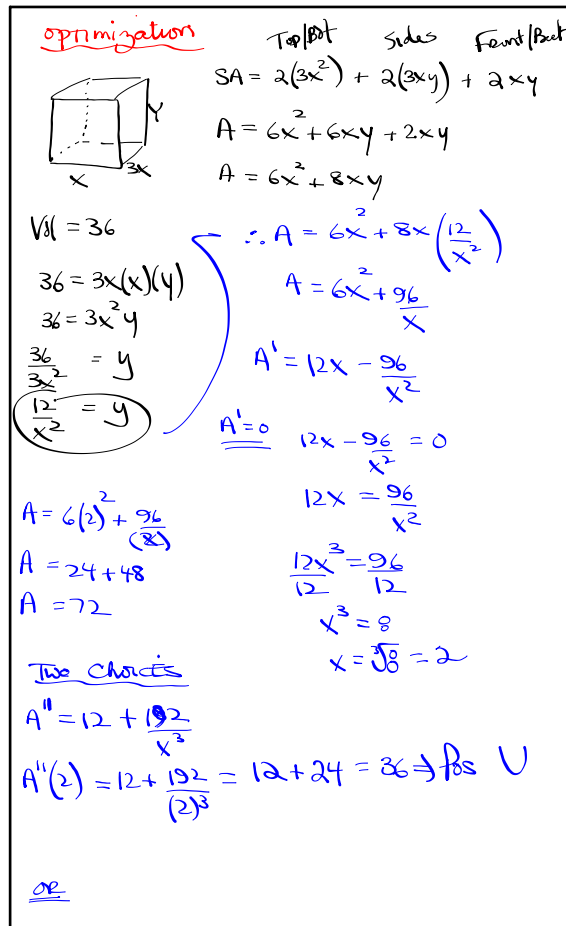 optimization
Top/Bot Sides Front/Back
SA = 2(3x²) + 2(3xy) + 2xy
A = 6x² + 6xy + 2xy
A = 6x² + 8xy
Y
X
3X
Vol = 36
36 = 3x(x)(y)
36 = 3x²y
36/3x² = y
12/x² = y
∴ A = 6x² + 8x(12/x²)
A = 6x² + 96/x
A' = 12x - 96/x²
A'=0 12x - 96/x² = 0
12x = 96/x²
12x³/12 = 96/12
x³ = 8
x = ³√8 = 2
A = 6(2)² + 96/(2)
A = 24 + 48
A = 72
Two Choices
A'' = 12 + 192/x³
A''(2) = 12 + 192/(2)³ = 12 + 24 = 36 → Pos ∪
OR